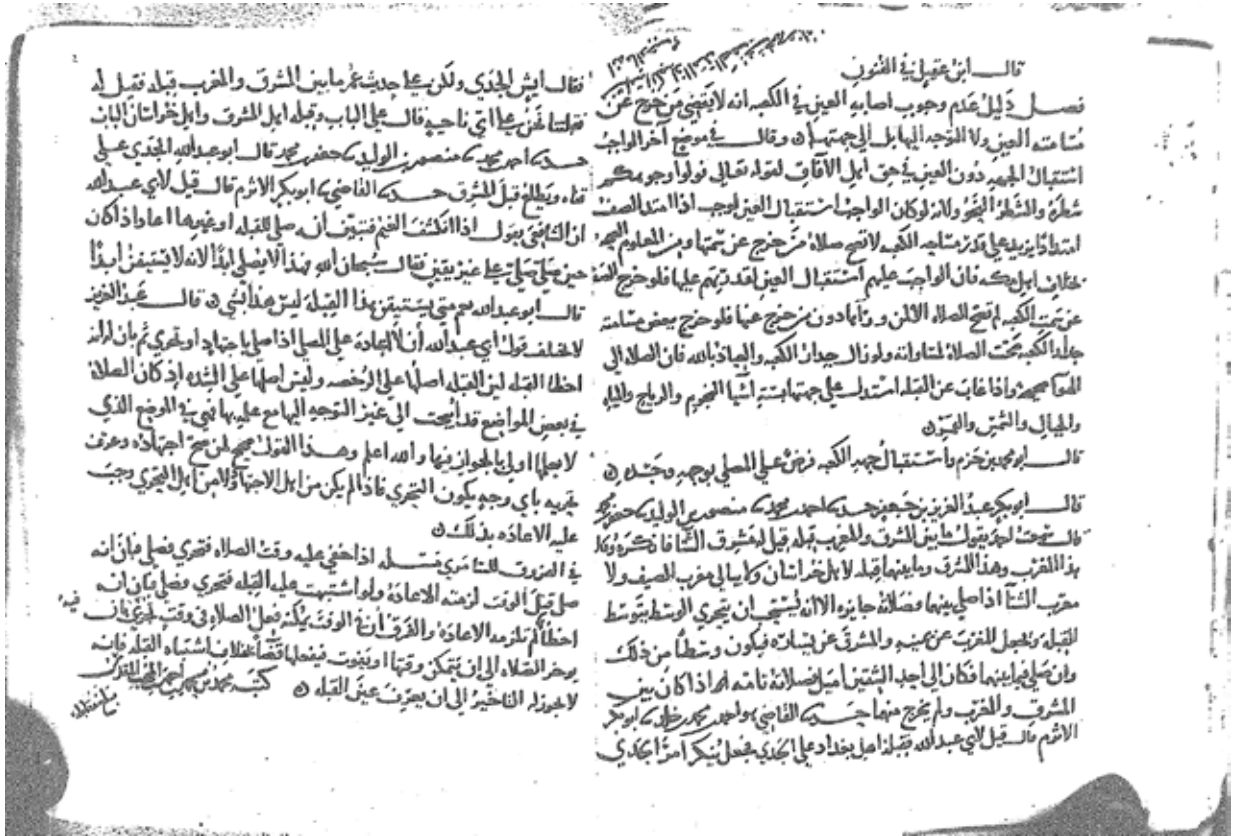 قال ابن عقيل في الفنون
فصل دليل عدم وجوب اصابه العين في الكعبه انه لا يقتضي من خرج عن
مسامتة العين ولا التوجه الى جهتها ٥ وقال في موضع آخر الواجب
استقبال الجهه دون العين في حق اهل الآفاق لقوله تعالى فولوا وجوهكم
شطره والشطر النحو ولانه لو كان الواجب استقبال العين لوجب اذا امتد الصف
امتدادا يزيد على قدر مساحه الكعبه لا تصح صلاة من خرج عن سمتها ومن المعلوم
بخلاف اهل مكه فان الواجب عليهم استقبال العين لقدرتهم عليها فلو خرج
عن سمت الكعبه لم تصح الصلاه دون من خرج عنها فلو خرج بعض مسامته
جدار الكعبه صحت الصلاة ولو زال جدار الكعبه والعياذ بالله فان الصلاه الى
الهوا صحيحة واذا غاب عن القبله استدل على جهتها بستة اشيا النجوم والرياح والمياه
والجبال والشمس والقمر ٥
قال ابو محمد بن حزم واستقبال جهه الكعبه فرض على المصلي بوجهه وجسده ٥
قال ابو بكر عبد العزيز بن جعفر حدثنا احمد بن محمد منصور بن الوليد جعفر بن محمد
قال سمعت احمد يقول ما بين المشرق والمغرب قبله قيل له مشرق الشتا فأنكره وقال
هذا المغرب وهذا المشرق وما بينهما قبله لاهل خراسان وكأنها الى مغرب الصيف ولا
مغرب الشتا اذا صلى بينهما فصلاته جايزه الا انه يستحب ان يتحرى الوسط يتوسط
القبله ويجعل المغرب عن يمينه والمشرق عن يساره فيكون وسطا من ذلك
وان صلى فيما بينهما فكان الى احد الشقين اميل فصلاته تامه اذا كان بين
المشرق والمغرب ولم يخرج منهما حدثنا القاضي احمد بن محمد ابو بكر
الاثرم قال قيل لابي عبد الله فقبلة اهل بغداد على الجدي فجعل ينكر امر الجدي
فقال ايش الجدي ولكن على حديث عمر ما بين المشرق والمغرب قبله فقيل له
قبلتنا نحن على اي ناحيه قال على الباب وقبله اهل المشرق واهل خراسان الباب
حدثنا احمد بن محمد منصور بن الوليد جعفر بن محمد قال ابو عبد الله الجدي على
قفاه ويطلع قبل المشرق حدثنا القاضي ابو بكر الاثرم قال قيل لابي عبد الله
ان الشافعي يقول اذا انكشف الغيم فتبين انه صلى للقبله او غيرها اعاد اذا كان
حين صلى صلى على غير يقين فقال سبحان الله هذا لا يصلي ابدا لانه لا يستيقن ابدا
قال ابو عبد الله نعم متى يستيقن هذا القبلة ليس هذا بشي ٥ قال عبد العزيز
لا يختلف قول ابي عبد الله أن لا اعادة على المصلي اذا صلى باجتهاد او تحري ثم بان له انه
اخطا القبله لان القبله اصلها على الرخصه وليس اصلها على الشده اذ كان الصلاة
في بعض المواضع قد أبيحت الى غير التوجه اليها مع علمه بها فهي في الموضع الذي
لا يعلمها اولى بالجواز فيها والله اعلم وهذا القول صحيح لمن صح اجتهاده وعرف
تحريه باي وجه يكون التحري فاذا لم يكن من اهل الاجتهاد ولا من اهل التحري وجب
عليه الاعاده بذلك ٥
في الفروق للسامري مسله اذا خفي عليه وقت الصلاه فتحرى فصلى فبان انه
صلى قبل الوقت لزمته الاعادة ولو اشتبهت عليه القبله فتحرى وصلى فبان انه
اخطأ لم تلزمه الاعاده والفرق أن في الوقت يمكنه فعل الصلاه في وقت
يوخر الصلاه الى ان يتمكن وقتها او يفوت فيفعلها قضاء بخلاف اشتباه القبله فانه
لا يجوز له التاخير الى ان يعرف عين القبله ٥ كتبه محمد بن محمد بن احمد